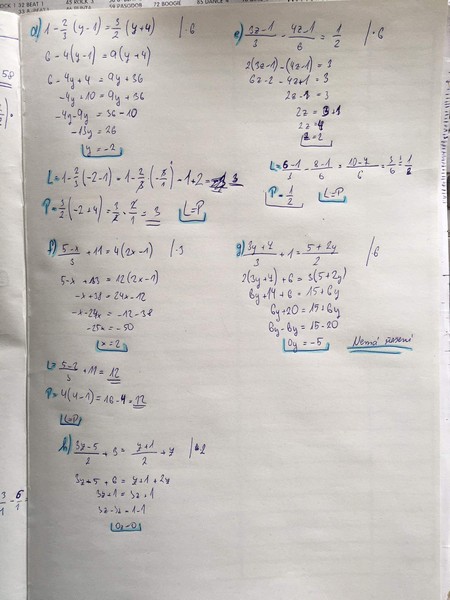 d) 1 - 2/3 (y-1) = 3/2 (y+4) /·6
6 - 4(y-1) = 9(y+4)
6 - 4y + 4 = 9y + 36
-4y + 10 = 9y + 36
-4y - 9y = 36 - 10
-13y = 26
y = -2
L = 1 - 2/3 (-2-1) = 1 - 2/3 · (-3/1) = 1 + 2 = 3
P = 3/2 (-2+4) = 3/2 · 2/1 = 3 L=P
e) 3z-1/3 - 4z-1/6 = 1/2 /·6
2(3z-1) - (4z-1) = 3
6z - 2 - 4z + 1 = 3
2z - 1 = 3
2z = 3+1
2z = 4
z = 2
L = 6-1/3 - 8-1/6 = 10-7/6 = 3/6 = 1/2
P = 1/2 L=P
f) 5-x/3 + 11 = 4(2x-1) /·3
5 - x + 33 = 12(2x-1)
-x + 38 = 24x - 12
-x - 24x = -12 - 38
-25x = -50
x = 2
L = 5-2/3 + 11 = 12
P = 4(4-1) = 16 - 4 = 12
L=P
g) 3y+7/3 + 1 = 5+2y/2 /·6
2(3y+7) + 6 = 3(5+2y)
6y + 14 + 6 = 15 + 6y
6y + 20 = 15 + 6y
6y - 6y = 15 - 20
0y = -5 Nemá řešení
h) 3z-5/2 + 3 =
0=0